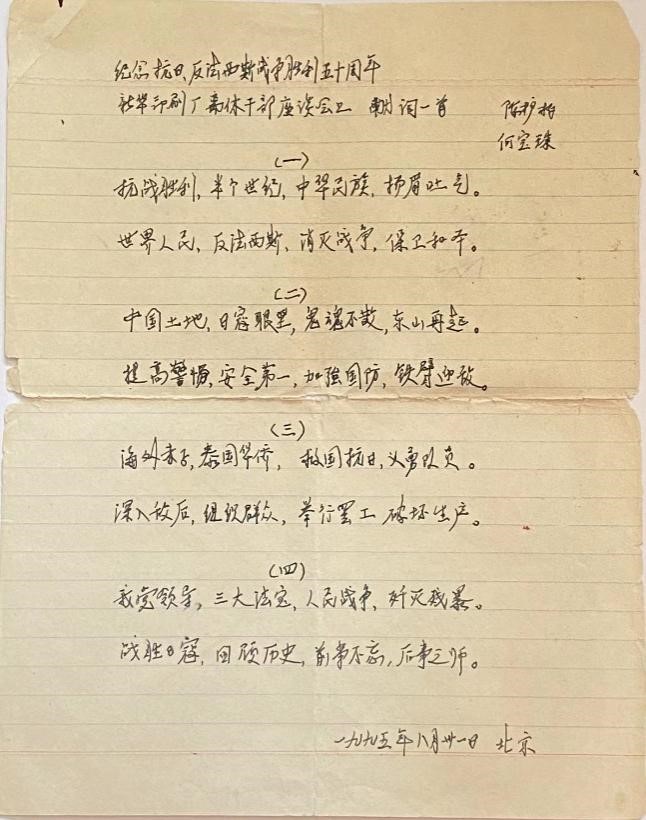 纪念抗日、反法西斯战争胜利五十周年
新华印刷厂离休干部座谈会上 献词一首 陈
何宝珠
(一)
抗战胜利,半个世纪,中华民族,扬眉吐气。
世界人民,反法西斯,消灭战争,保卫和平。
(二)
中国土地,日寇眼黑,鬼魂不散,东山再起。
提高警惕,安全第一,加强国防,铁臂迎敌。
(三)
海外赤子,泰国华侨,救国抗日,义勇队员。
深入敌后,组织群众,举行罢工 破坏生产。
(四)
我党领导,三大法宝,人民战争,歼灭残暴。
战胜日寇,回顾历史,前事不忘,后事之师。
一九九五年八月卅一日 北京